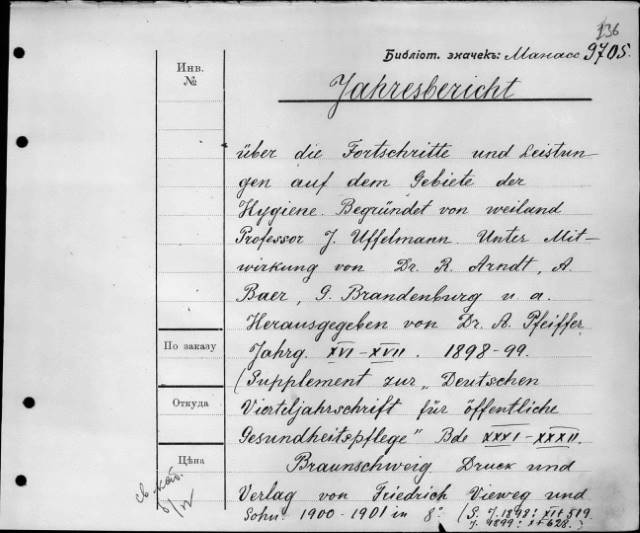 136
Библіот. значекъ: Манасс 9705.
Инв.
№
Jahresbericht
über die Fortschritte und Leistun
gen auf dem Gebiete der
Hygiene. Begründet von weiland
Professor J. Uffelmann. Unter Mit-
wirkung von Dr. R. Arndt, A.
Baer, G. Brandenburg u. a.
Herausgegeben von Dr. A. Pfeiffer.
По заказу
Jahrg. XVI-XVII. 1898-99.
(Supplement zur „Deutschen
Откуда
Vierteljahrschrift für öffentliche
Gesundheitspflege" Bde XXXI-XXXII.
Цѣна
Braunschweig Druck und
Verlag von Friedrich Vieweg und
Sohn. 1900-1901 in 8°. (S. J. 1898: XI+519.
J. 1899: X+628.)